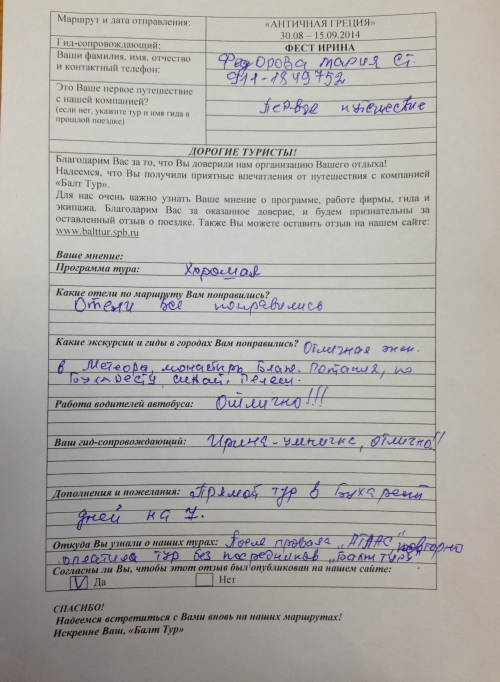 Маршрут и дата отправления: «АНТИЧНАЯ ГРЕЦИЯ»
30.08 – 15.09.2014
Гид-сопровождающий: ФЕСТ ИРИНА
Ваши фамилия, имя, отчество Федорова Мария Ст.
и контактный телефон: 911-1849752
Это Ваше первое путешествие
с нашей компанией? Первое путешествие
(если нет, укажите тур и имя гида в
прошлой поездке)
ДОРОГИЕ ТУРИСТЫ!
Благодарим Вас за то, что Вы доверили нам организацию Вашего отдыха!
Надеемся, что Вы получили приятные впечатления от путешествия с компанией
«Балт Тур».
Для нас очень важно узнать Ваше мнение о программе, работе фирмы, гида и
экипажа. Благодарим Вас за оказанное доверие, и будем признательны за
оставленный отзыв о поездке. Также Вы можете оставить отзыв на нашем сайте:
www.balttur.spb.ru
Ваше мнение:
Программа тура: Хорошая
Какие отели по маршруту Вам понравились?
Отели все понравились
Какие экскурсии и гиды в городах Вам понравились? Отличная экск.
в Метеора, монастырь Влах. Потания, по
Бухаресту, Синай, Пелеш.
Работа водителей автобуса: Отлично!!!
Ваш гид-сопровождающий: Ирина-умничка, отлично!!
Дополнения и пожелания: Прямой тур в Бухарест
дней на 7.
Откуда Вы узнали о наших турах: После провала „АТЛАС“ повторно
оплатила тур без посредников „Балт Тур“
Согласны ли Вы, чтобы этот отзыв был опубликован на нашем сайте:
V Да Нет
СПАСИБО!
Надеемся встретиться с Вами вновь на наших маршрутах!
Искренне Ваш, «Балт Тур»